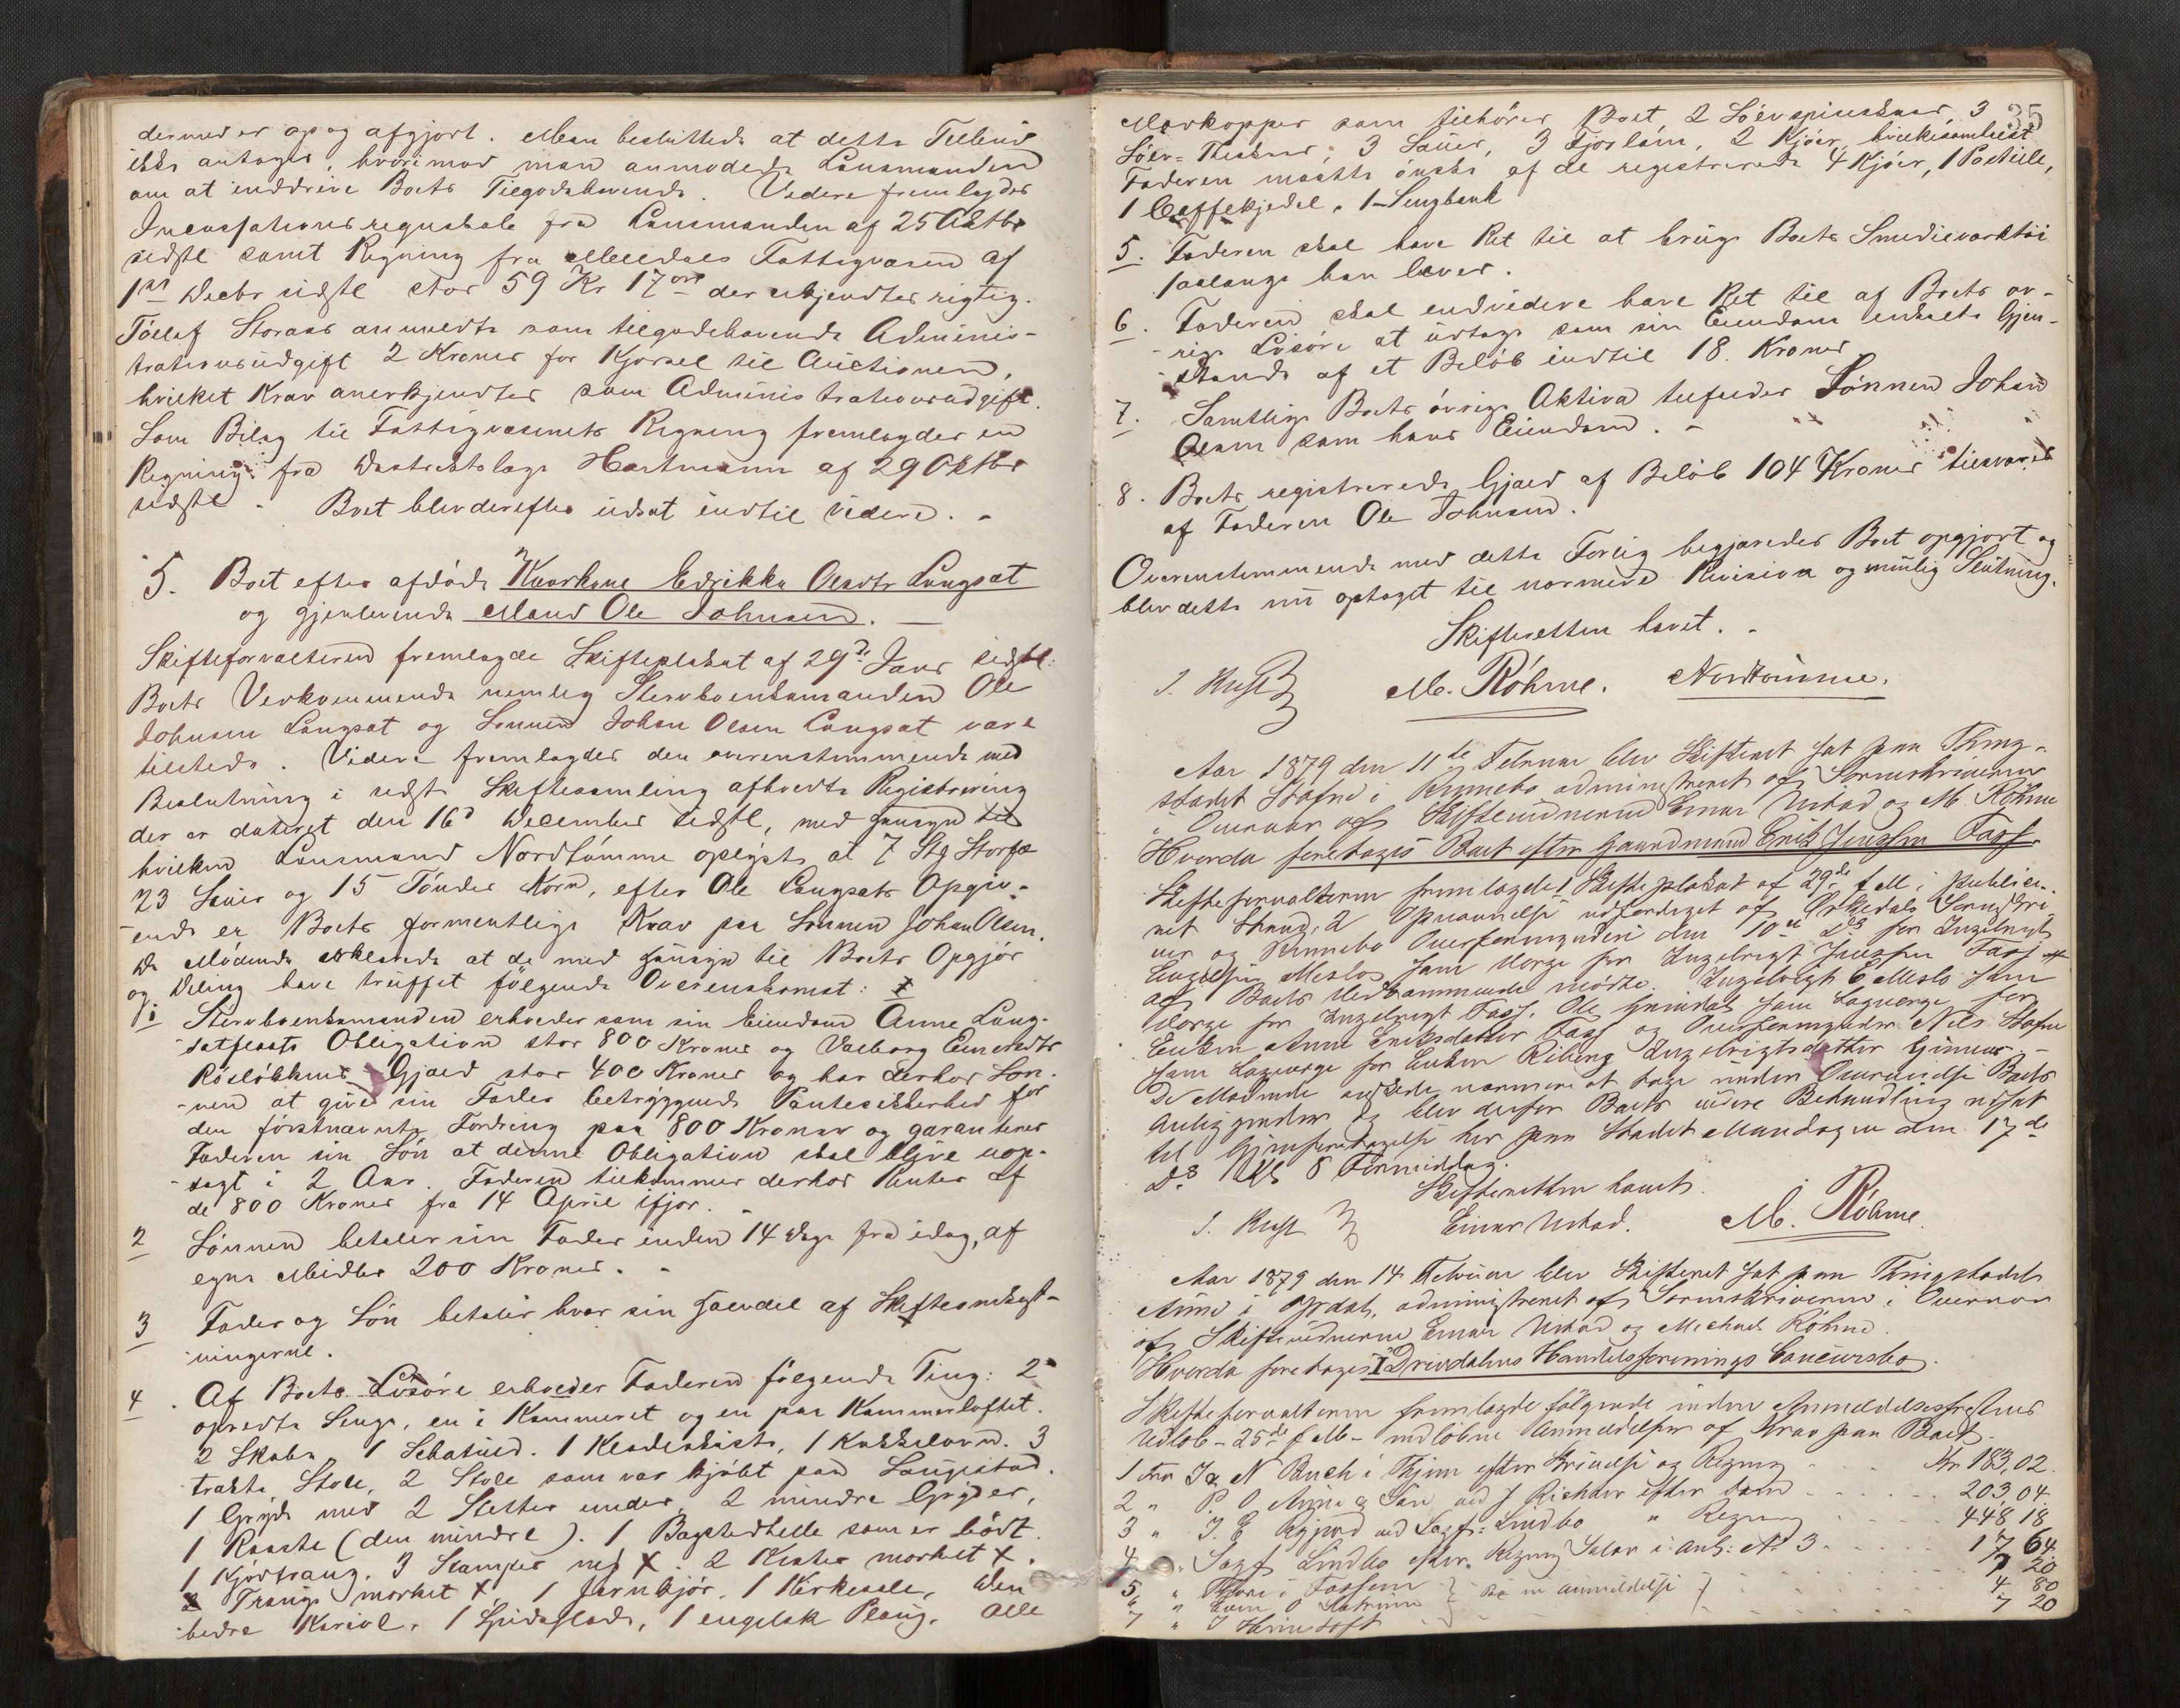 dermed er op og afgjort. Man besluttede at dette Tilbud
ikke antages, hvorimod man anmodede Lensmanden
om at inddrive Boets Tilgodehavende. Videre fremlagdes
Incassationsregnskab fra Lensmanden af 25 Oktbr
sidstl samt Regning fra Meldals Fattigvæsen af
1ste Decbr sidstl stor 59 Kr 17 øre der erkjendtes rigtig.
Tollef Storaas anmeldte som tilgodehavende Adminis-
trationsudgift 2 Kroner for Kjørsel til Auctionen,
hvilket Krav anerkjendtes som Administrationsudgift.
Som Bilag til Fattigvæsenets Regning fremlagdes en
Regning fra Distriktslæge Hartmann af 29 Oktbr
sidstl. Boet blev derefter udsat indtil videre.
5. Boet efter afdøde Kaarkone Edrikka Olsdtr Langsæt
og gjenlevende Mand Ole Johnsen.
Skifteforvalteren fremlagde Skifteplakat af 29de Janr sidstl.
Boets Vedkommende nemlig Stervboenkemanden Ole
Johnsen Langsæt og Sønnen Johan Olsen Langsæt vare
tilstede. Videre fremlagdes den overensstemmende med
Beslutning i sidste Skiftesamling afholdte Registrering
der er dateret den 16d December sidstl, med Hensyn til
hvilken Lensmand Nordtømme oplyste at 7 Stk Storfæ
23 Sauer og 15 Tønder Korn, efter Ole Langsæts Opgiv-
ende er Boets formentlige Krav paa Sønnen Johan Olsen.
De Mødende erklærede at de med Hensyn til Boets Opgjør
og Deling have truffet følgende Overenskomst:
1. Stervboenkemanden erholder som sin Eiendom Anne Lang-
sætsests Obligation stor 800 Kroner og Valborg Einersdtr
Røsløkkens Gjæld stor 400 Kroner og har derhos Søn-
nen at give sin Fader betryggende Pantesikkerhed for
den førstnævnte Fordring paa 800 Kroner og garanterer
Faderen sin Søn at denne Obligation skal blive uop-
sagt i 2 Aar. Faderen tilkommer derhos Renter af
de 800 Kroner fra 14 April ifjor.
2 Sønnen betaler sin Fader inden 14 Dage fra idag, af
egne Midler 200 Kroner.
3 Fader og Søn betaler hver sin Halvdel af Skifteomkost-
ningerne.
4. Af Boets Løsøre erholder Faderen følgende Ting: 2
opredte Senge, en i Kammeret og en paa Kammerloftet.
2 Skabe 1 Schatuld. 1 Klædeskiste, 1 Kakkelovn. 3
trakte Stole, 2 Stole som var kjøbt paa Laugistad.
1 Gryde med 2 Sletter under, 2 mindre Gryder,
1 Panne (den mindre). 1 Bagstedhelle som er bødt.
1 Kjørtraug. 3 Stamper med X. 2 Kister mærket X.
2 Trauge mærket X, 1 Jernkjør. 1 Kirkesele, Den
bedre Kariol. 1 Spidsslæde, 1 engelsk Plaug. Alle
35
Mærkopper som tilhører Boet 2 Sølvspiseskeer, 3
Sølv-Theskeer, 3 Sauer, 3 Fjorlam, 2 Kjøer, hvilkesomhelst
Faderen maatte ønske af de registrerede 4 Kjøer, 1 Postille,
1 Caffekjedel, 1 Sengbenk
5. Faderen skal have Ret til at bruge Boets Smedieværktøi
saalænge han lever.
6. Faderen skal endvidere have Ret til af Boets øv-
rige Løsøre at udtage som sin Eiendom enkelte Gjen-
stande af et Beløb indtil 18 Kroner
7. Samtlige Boets øvrige Aktiva tilfalder Sønnen Johan
Olsen som hans Eiendom.
8. Boets registrerede Gjæld af Beløb 104 Kroner tilsvares
af Faderen Ole Johnsen.
Overensstemmende med dette Forlig begjæredes Boet opgjort og
blev dette nu optaget til nærmere Revision og mulig Slutning.
Skifteretten hævet.
M. Röhme. Nordtømme.
Aar 1879 den 11te Februar blev Skifteret sat paa Thing-
stedet Stafne i Rennebo administreret af Sorenskriveren
i Overvær af Skiftevidnerne Einar Urstad og M. Röhme
Hvorda foretages Boet efter Gaardmand Erik Jensen Fass.
Skifteforvalteren fremlagde 1 Skifteplakat af 29de f M. i publice-
ret Stand, 2 Opnævnelse udfærdiget af Orkedals Sorenskri
ver og Rennebo Overformynderi den 10de ds for Ingebrigt
Meslo som Værge for Ingebrigt Fass
af Boets Vedkommende mødte. Ingebrigt E Meslo som
Værge for Ingebrigt Fass. Ole Grindal som Laugværge for
Enken Anne Eriksdatter Fass og Overformynder Nils Stafne
som Laugværge for Enken Ingebrigtsdatter
De Mødende ønskede nærmere at tage under Overveielse Boets
Anliggender og blev derfor Boets videre Behandling udsat
til Gjenforetagelse her paa Stedet Mandagen den 17de
ds Kl 8 Formiddag.
Skifteretten hævet.
Einar Urstad. M. Röhme.
Aar 1879 den 14 Februar blev Skifteret sat paa Thingstedet
Aune i Opdal, administreret af Sorenskriveren i Overvær
af Skiftevidnerne Einar Urstad og Michael Röhme.
Hvorda foretages 1. Drivdalens Handelsforenings Concursbo.
Skifteforvalteren fremlagde følgende inden Anmeldelsesfristens
Udløb - 25de f M - indløbne Anmeldelser af Krav paa Boet.
1 fra Buch i Thjem efter Skrivelse og Regning Kr 183,02
2 " P. O Aune & Søn ved J Richter efter dom 203 04
3 " J. E ved Sagf: Lindbo " Regning 448 18
4 " Sagf Lindbo efter Regning Salær i anl: No 3 17 64
5 " Thore i Fossem 7 20
6 " Even O 4 80
7 " J 7 20